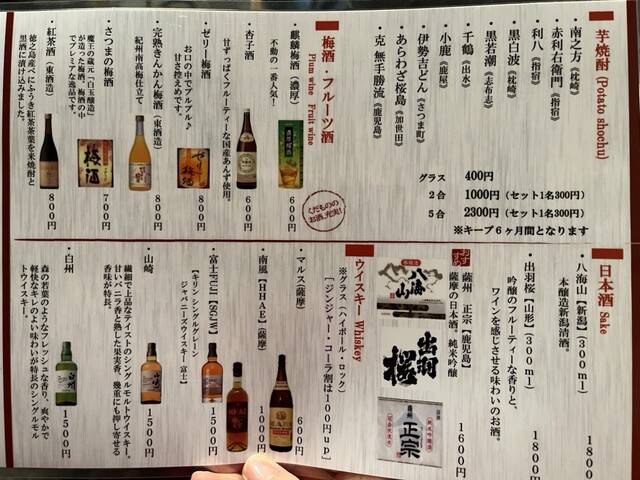 芋焼酎 (Potato shochu)
・南之方《枕崎》
・赤利右衛門《指宿》
・利八《指宿》
・黒白波《枕崎》
・黒若潮《志布志》
・千鶴《出水》
・小鹿《鹿屋》
・伊勢吉どん《さつま町》
・あらわざ桜島《加世田》
・克 無手勝流《鹿児島》
グラス 400円
2合 1000円(セット1名300円)
5合 2300円(セット1名300円)
※キープ6ヶ月間となります
梅酒・フルーツ酒
Plum wine Fruit wine
・麒麟梅酒(濃厚)
不動の一番人気!
600
・杏子酒
甘ずっぱくフルーティーな国産あんず使用。
600
・ゼリー梅酒
お口の中でプルプル♪
甘さ控えめです。
800
・完熟きんかん梅酒(東酒造)
紀州南高梅仕立て
800
・さつまの梅酒
魔王の蔵元「白玉醸造」
が造った梅酒。梅酒の中
でプレミアムな逸品です。
700
・紅茶酒(東酒造)
徳之島産べにふうき紅茶茶葉を米焼酎と
黒酒に漬け込みました。
800
くだものの
お酒、充実!
日本酒 Sake
・八海山【新潟】(300ml)
本醸造新潟清酒。
1800
・出羽桜【山形】(300ml)
吟醸のフルーティーな香りと、
ワインを感じさせる味わいのお酒。
1800
おすすめ
薩州 正宗【鹿児島】
薩摩の日本酒。純米吟醸
1600
八海山
出羽桜
正宗
ウイスキー Whiskey
※グラス(ハイボール・ロック)
[ジンジャー・コーラ割は100円up]
・マルス(薩摩)
600
・南風【HHAE】(薩摩)
1000
・富士【FUJI】【SGJW】
【キリンシングルグレーン
ジャパニーズウイスキー富士】
1500
・山崎
繊細で上品なテイストのシングルモルトウイスキー。
甘いバニラ香と熟した果実香、幾重にも押し寄せる
香味が特長。
1500
・白州
森の若葉のようなフレッシュな香り、爽やかで
軽快なキレのよい味わいが特長のシングルモル
トウイスキー。
1500